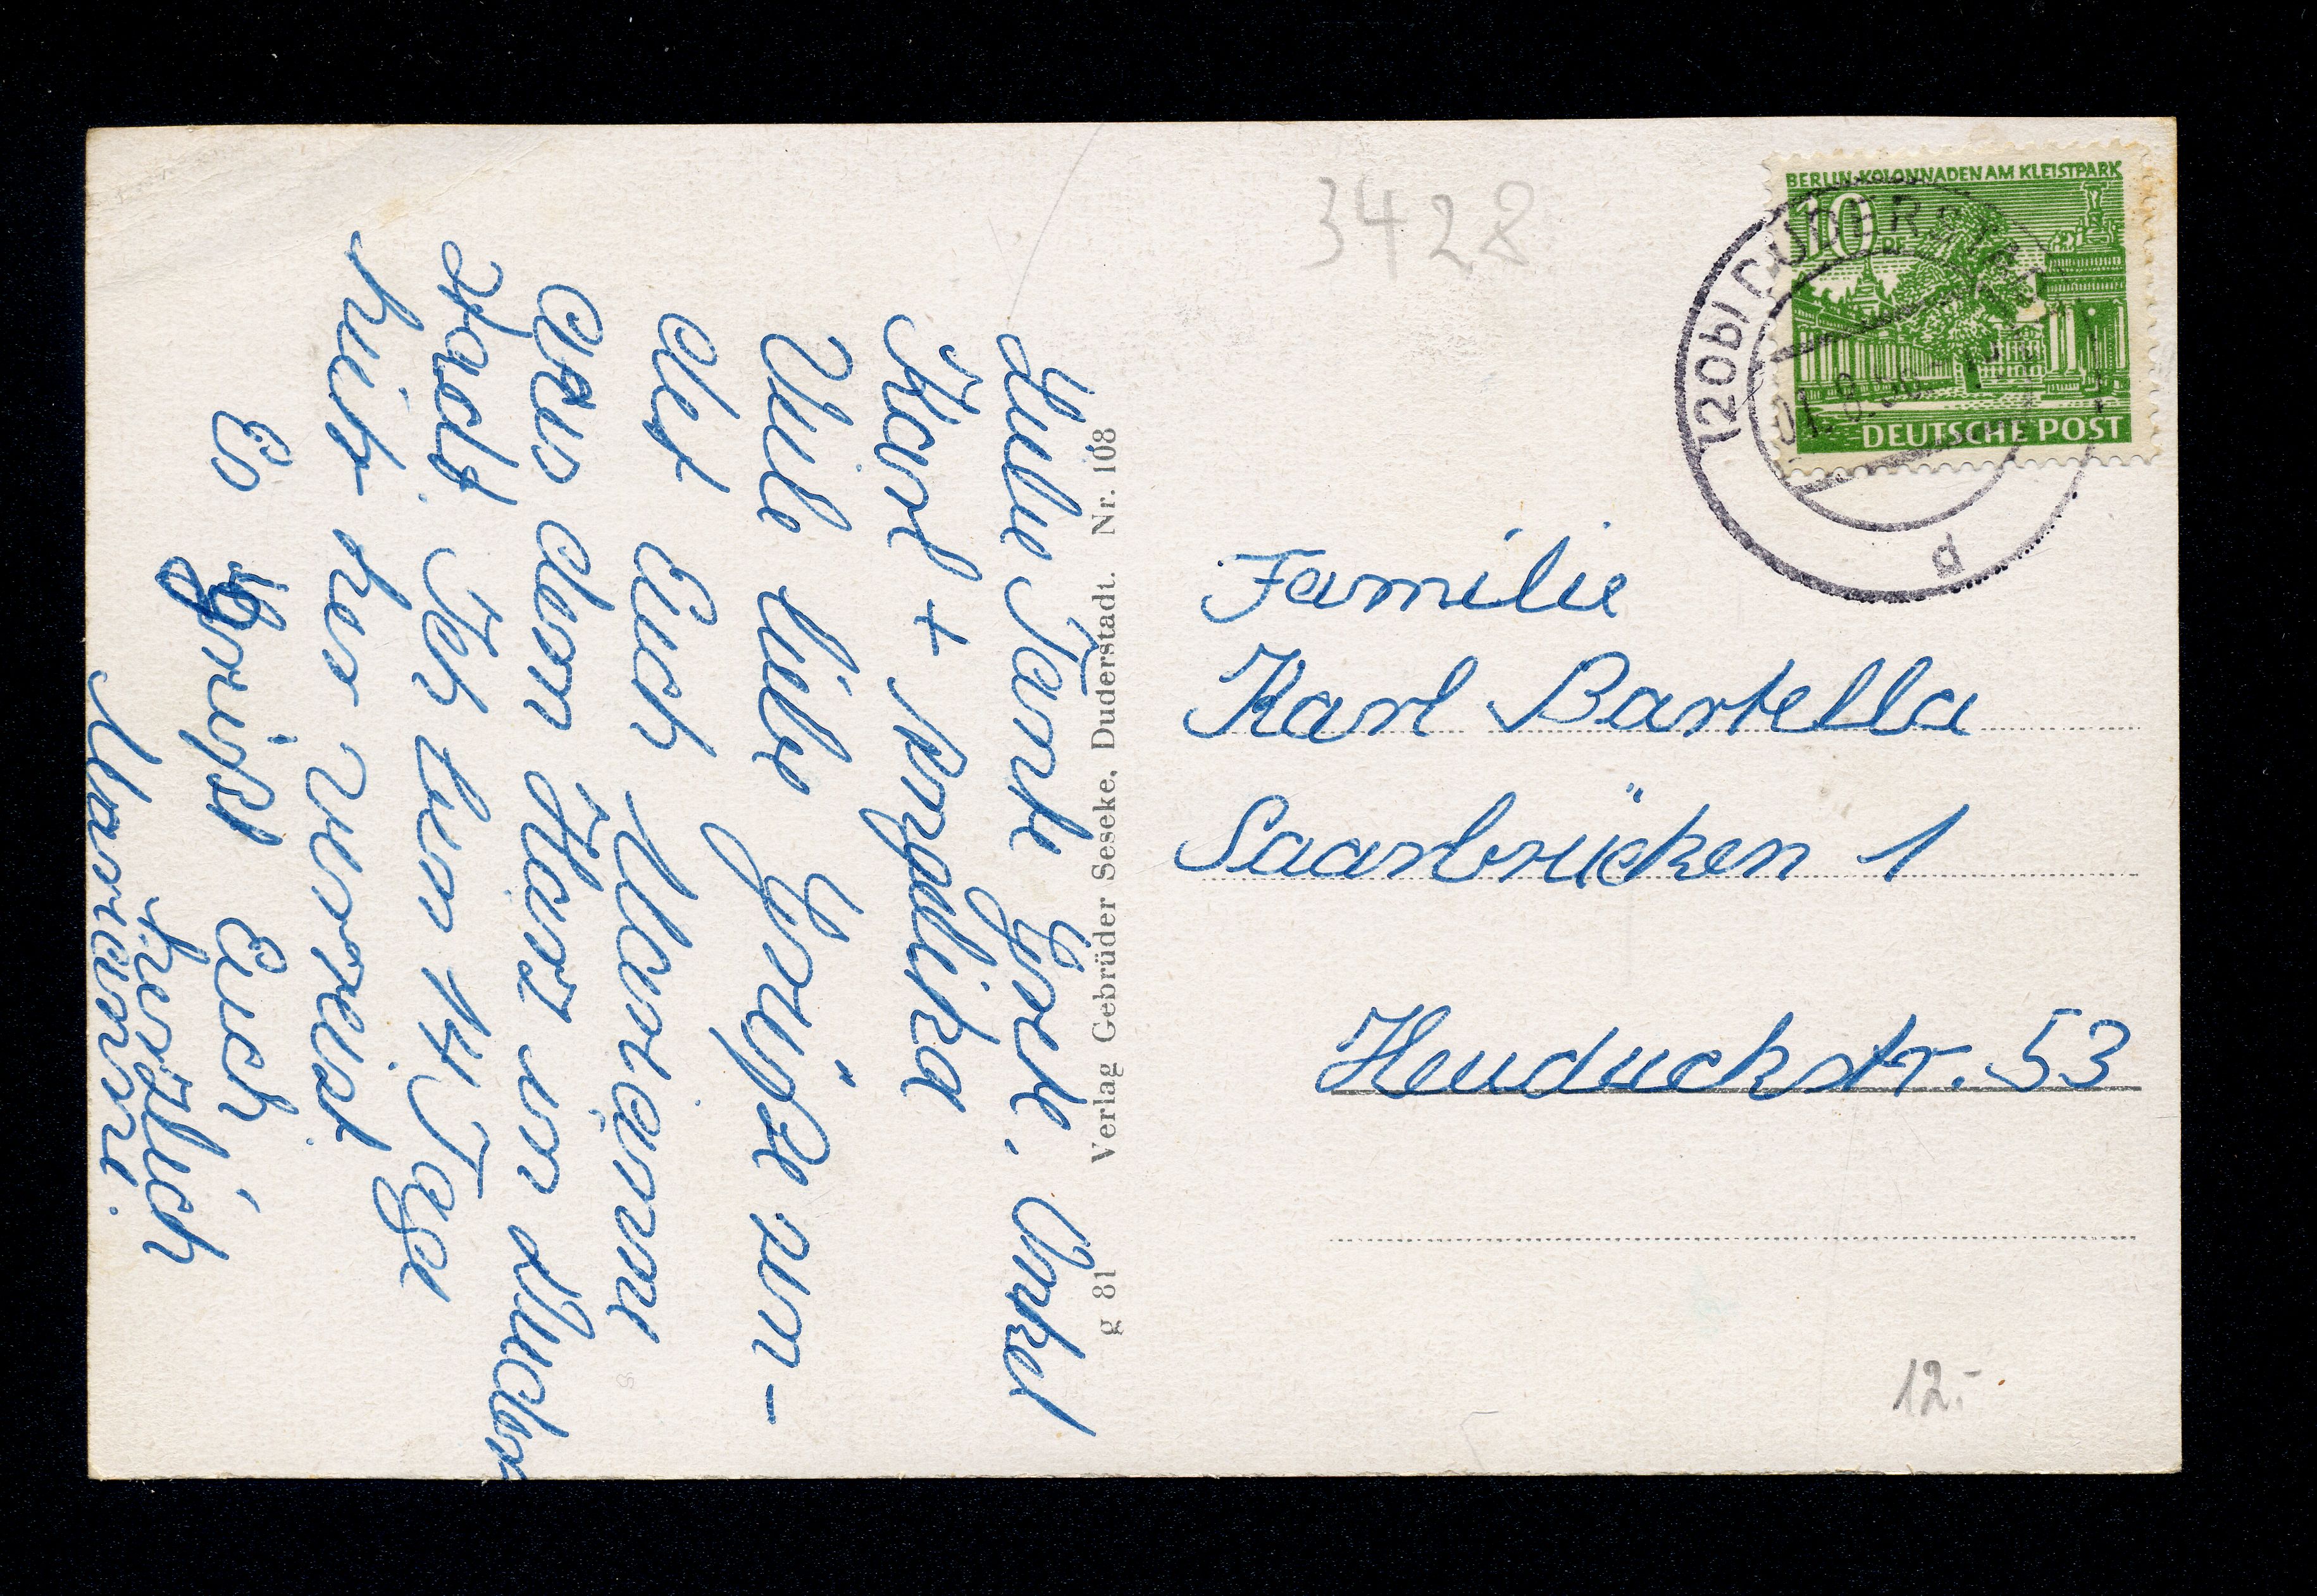 Liebe Tante Grete, Onkel
Karl + Angelika
Viele liebe Grüße sen-
det Euch Marianne
aus dem Harz in Duder
stadt. Ich bin 14 Tage
hier her verreist.
Es grüßt Euch,
herzlich
Marianne.
g 81 Verlag Gebrüder Seseke, Duderstadt. Nr. 108
3428
BERLIN-KOLONNADEN AM KLEISTPARK
10 PF
DEUTSCHE POST
(20b) DUDERSTADT
d
Familie
Karl Bartella
Saarbrücken 1
Heuduckstr. 53
12.-